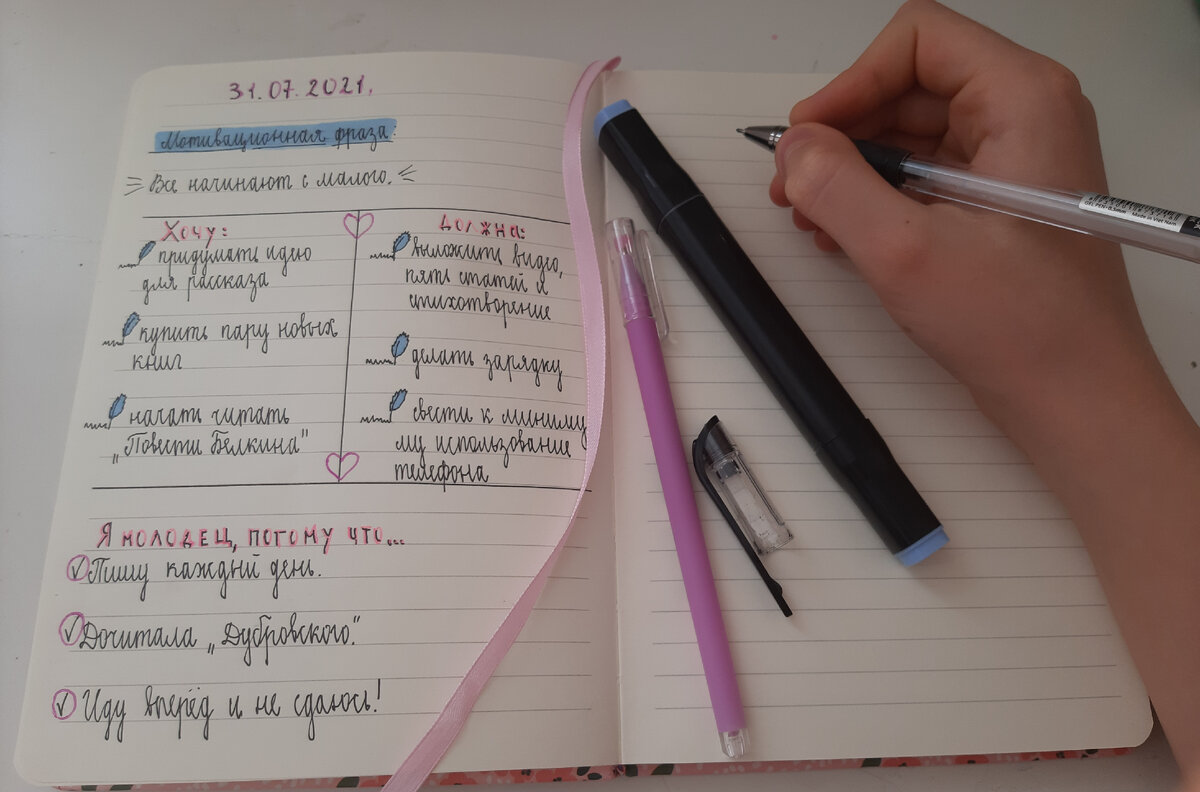 31.07.2021.
Мотивационная фраза:
Все начинают с малого.
Хочу:
придумать идею
для рассказа
купить пару новых
книг
начать читать
„Повести Белкина"
Должна:
выложить видео,
пять статей и
стихотворение
делать зарядку
свести к миниму
му использование
телефона
Я молодец, потому что...
Пишу каждый день.
Дочитала „Дубровского".
Иду вперёд и не сдаюсь!
GEL PEN-0.5mm Made in Viet Nam